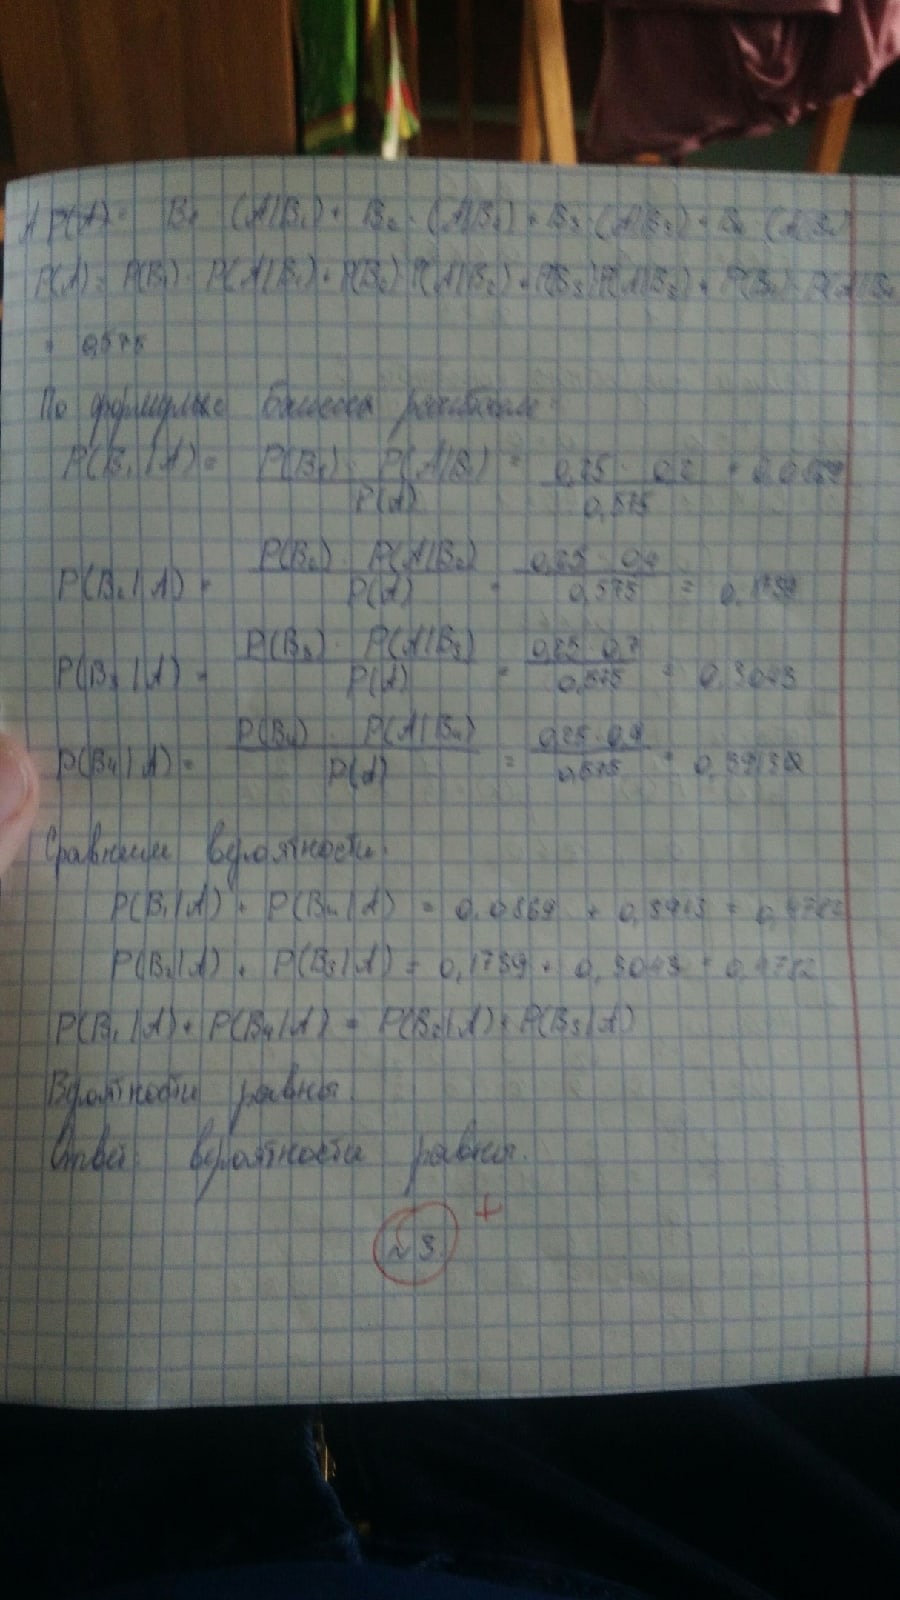 P(A) = B₁ · (A|B₁) + B₂ · (A|B₂) + B₃ · (A|B₃) + B₄ · (A|B₄)
P(A) = P(B₁) · P(A|B₁) + P(B₂) · P(A|B₂) + P(B₃) · P(A|B₃) + P(B₄) · P(A|B₄)
= 0,575
По формуле
P(B₁|A) = P(B₁) · P(A|B₁) / P(A) = 0,25 · 0,2 / 0,575 = 0,0869
P(B₂|A) = P(B₂) · P(A|B₂) / P(A) = 0,25 · 0,4 / 0,575 = 0,1739
P(B₃|A) = P(B₃) · P(A|B₃) / P(A) = 0,25 · 0,7 / 0,575 = 0,3043
P(B₄|A) = P(B₄) · P(A|B₄) / P(A) = 0,25 · 0,9 / 0,575 =
Сравним вероятности.
P(B₁|A) + P(B₄|A) = 0,0869 + 0,3913 = 0,4782
P(B₂|A) + P(B₃|A) = 0,1739 + 0,3043 = 0,4782
P(B₁|A) + P(B₄|A) = P(B₂|A) + P(B₃|A)
Вероятности равны.
Ответ: вероятности равны.
+
№3.